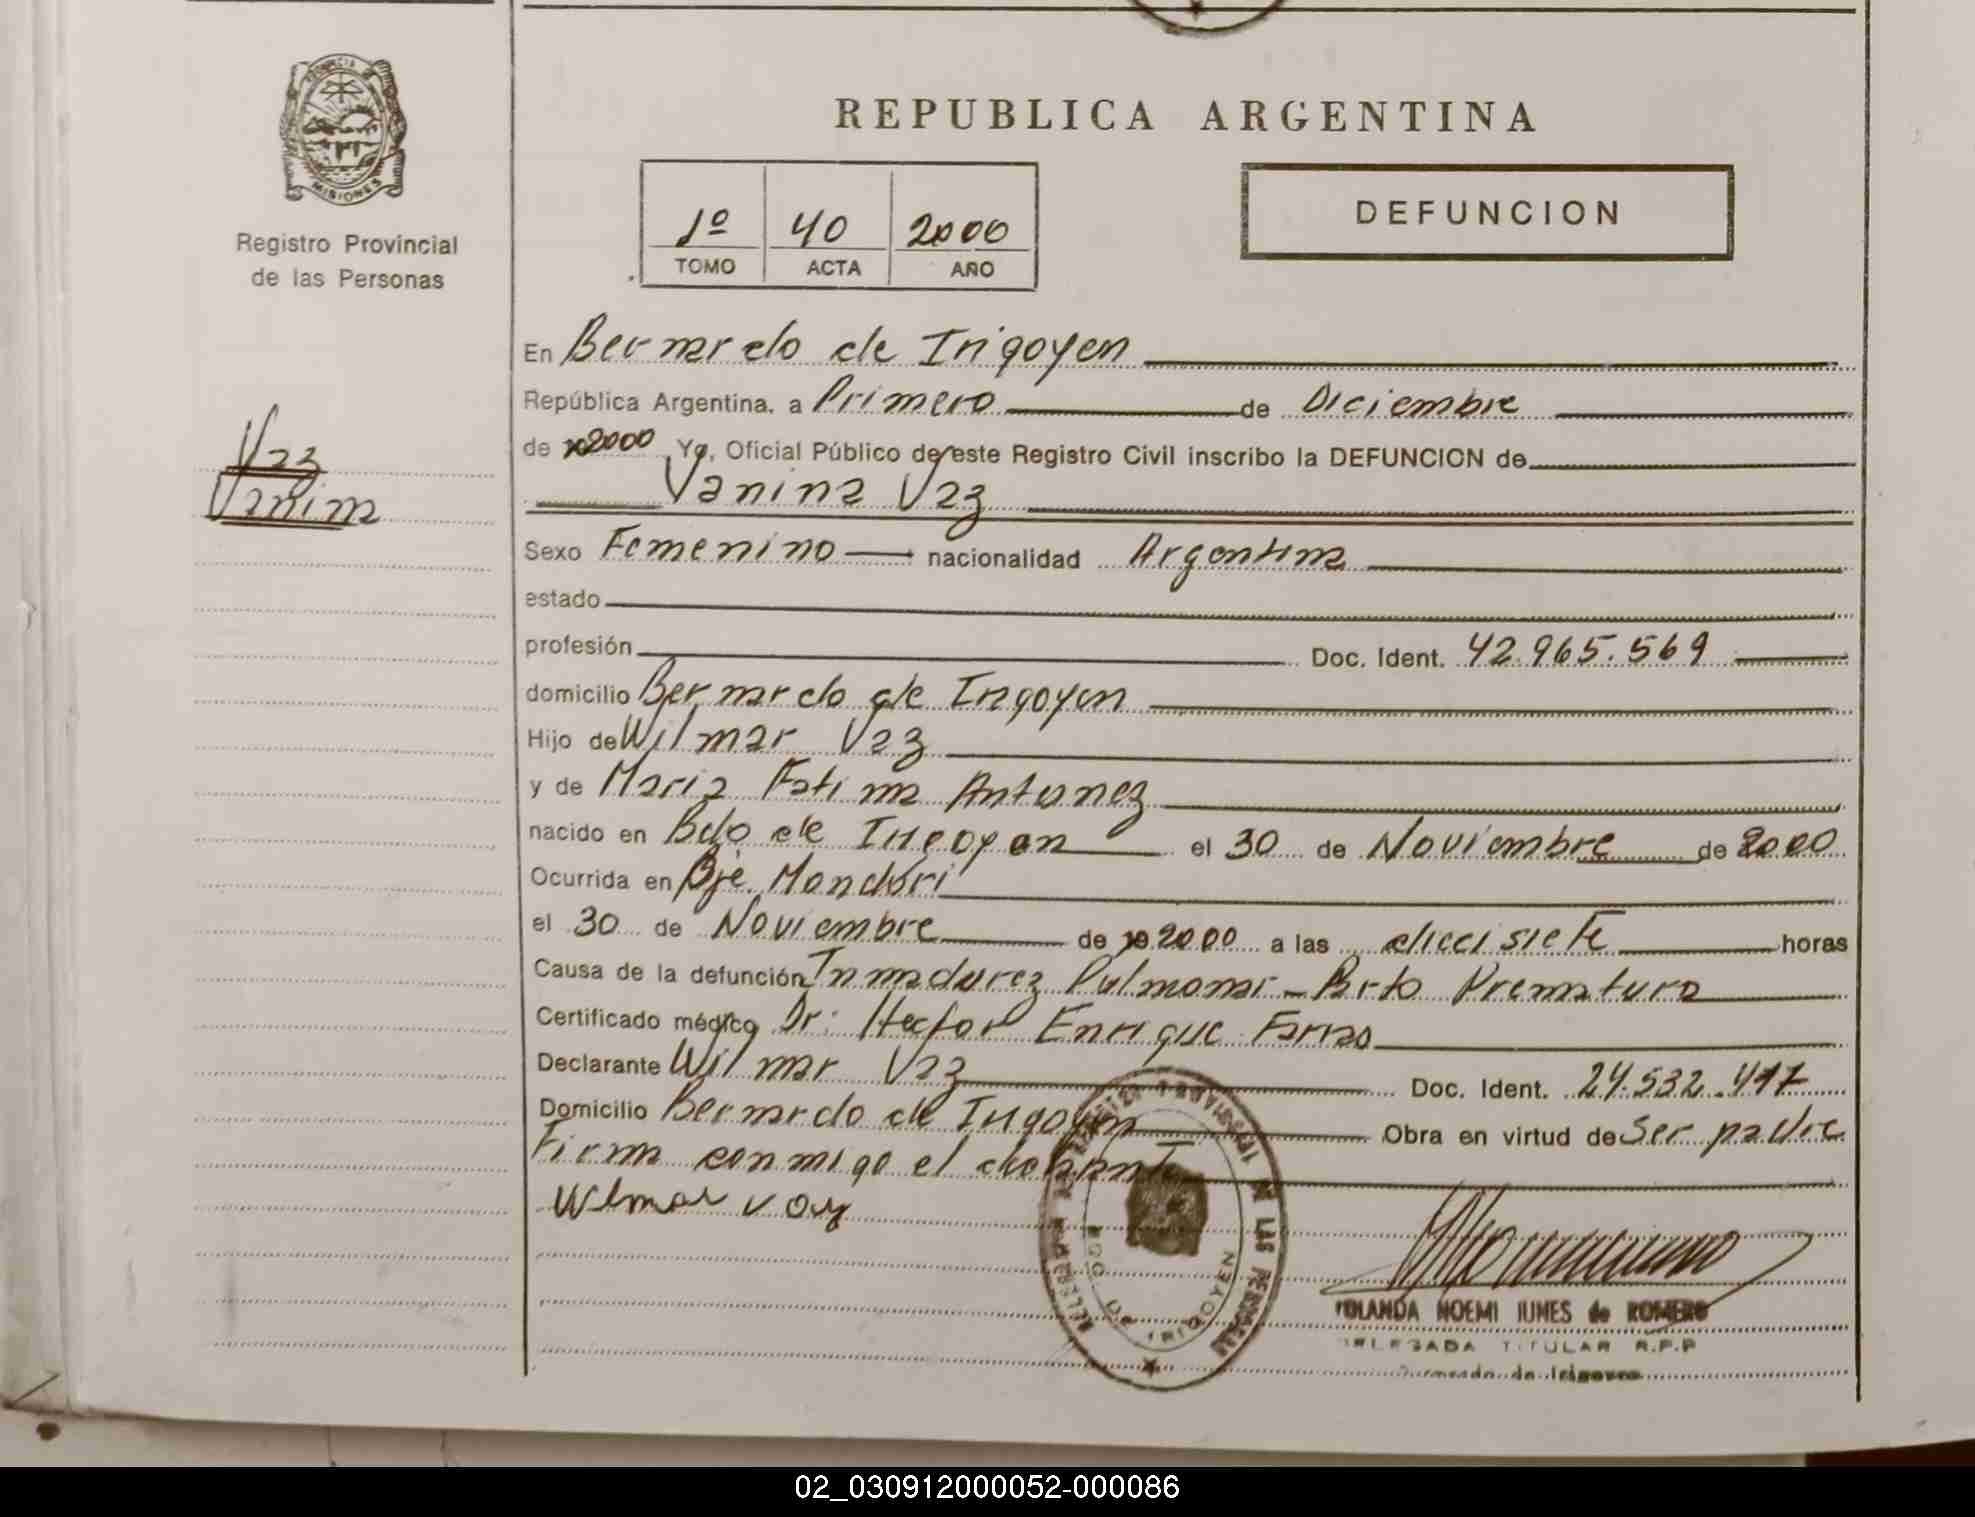 PROVINCIA DE
MISIONES
Registro Provincial
de las Personas
Vaz
Vanina
REPUBLICA ARGENTINA
1º 40 2000
TOMO ACTA AÑO
DEFUNCION
En Bernardo de Irigoyen
República Argentina, a Primero de Diciembre
de 2000 Yo, Oficial Público de este Registro Civil inscribo la DEFUNCION de
Vanina Vaz
Sexo Femenino nacionalidad Argentina
estado
profesión Doc. Ident. 42.965.569
domicilio Bernardo de Irigoyen
Hijo de Wilmar Vaz
y de Maria Fatima Antunez
nacido en Bdo de Irigoyen el 30 de Noviembre de 2000
Ocurrida en Pje. Mondori
el 30 de Noviembre de 2000 a las diecisiete horas
Causa de la defunción Inmadurez Pulmonar - Parto Prematuro
Certificado médico Dr: Hector Enrique
Declarante Wilmar Vaz Doc. Ident. 24.532.417
Domicilio Bernardo de Irigoyen Obra en virtud de Ser padre
Firma conmigo el
Wilmar Vaz
DE LAS PERSONAS
BDO. DE IRIGOYEN
YOLANDA NOEMI IUNES de ROMERO
DELEGADA TITULAR R.P.P
Bernardo de Irigoyen
02_030912000052-000086